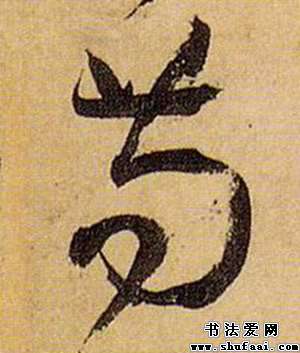 苟
书法爱网
www.shufaai.com